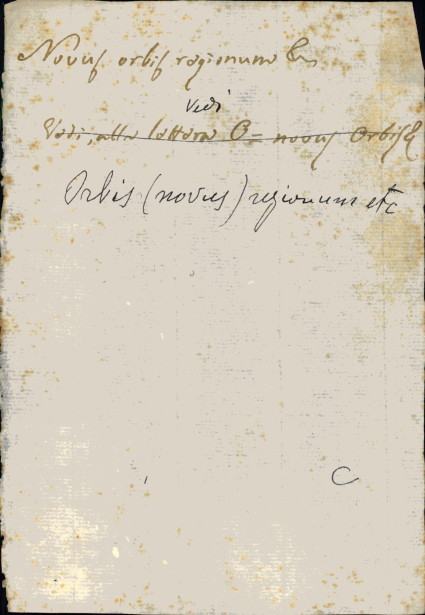 Novus orbis regionum &
Vedi
Vedi, alla lettera O = novus Orbis &
Orbis (novus) regionum etc
C